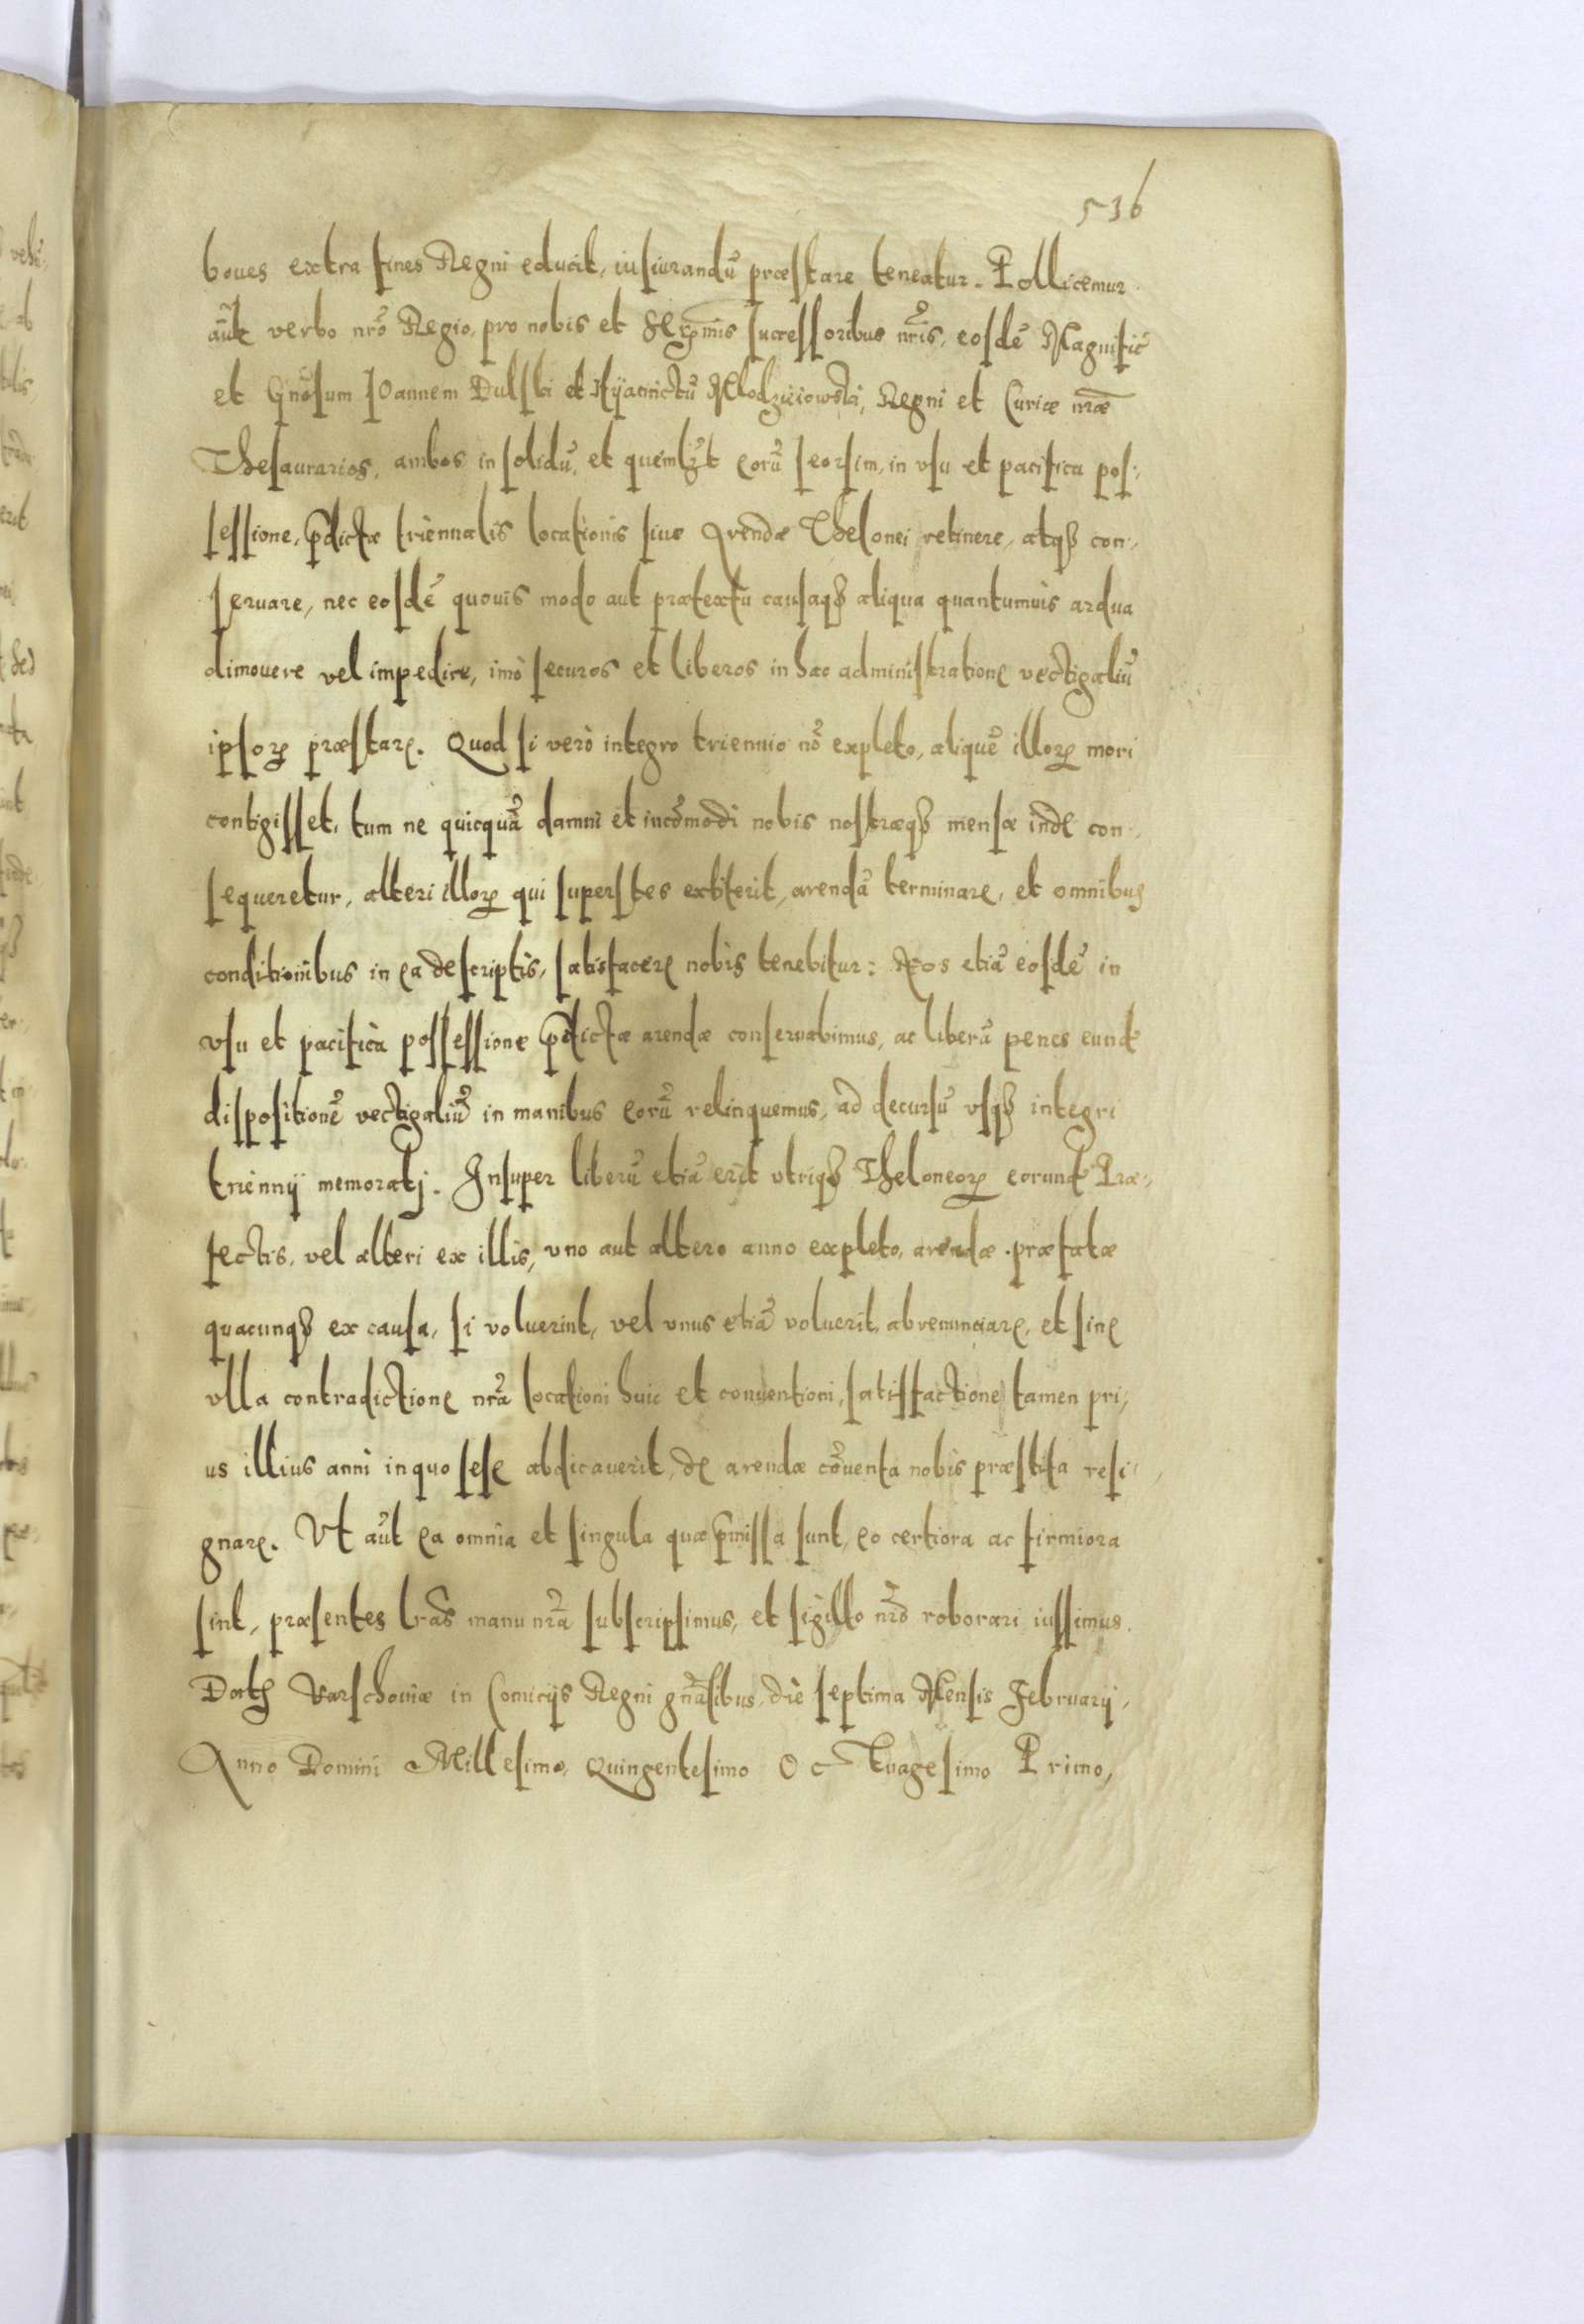 536
boues extra fines Regni educit, iusiurandũ præstare teneatur. Pollicemur
aũt verbo nrõ Regio, pro nobis et Serẽnmis successoribus nr̃is, eosdẽ Magnific̃
et Gnõsum Ioannem Dulski et Hyacinctũ Mlodzieiowski, Regni et Curiæ nræ̃
Thesaurarios, ambos in solidũ, et quemlꝫt eorũ seorsim, in vsu et pacifica pos-
sessione, p̃dictæ triennalis locationis siue Arendæ Thelonei retinere, atqꝫ con-
seruare, nec eosdẽ quouis modo aut prætextu causaqꝫ aliqua quantumuis ardua
dimouere vel impedire, imò securos et liberos in hac administratione vectigaliũ
ipsoꝝ præstare. Quod si verò integro triennio nõ expleto, aliquẽ illoꝝ mori
contigisset, tum ne quicquã damni et incõmodi nobis nostræqꝫ mensæ inde con-
sequeretur, alteri illoꝝ qui superstes extiterit, arendã terminare, et omnibus
conditionibus in ea descriptis, satisfacere nobis tenebitur: Nos etiã eosdẽ in
vsu et pacifica possessione p̃dictæ arendæ conseruabimus, ac liberã penes eund̃
dispositionẽ vectigaliũ in manibus eorũ relinquemus, ad decursũ vsqꝫ integri
triennij memoratj. Insuper liberũ etiã erit vtriqꝫ Theloneoꝝ eorund̃ Præ-
fectis, vel alteri ex illis, vno aut altero anno expleto, arendæ præfatæ
quacunqꝫ ex causa, si voluerint, vel vnus etiã voluerit, abrenunciare, et sine
vlla contradictione nr̃a locationi huic et conuentioni, satisfactione tamen pri-
us illius anni in quo sese abdicauerit, de arendæ cõuenta nobis præstita resi-
gnare. Vt aũt ea omnia et singula quæ p̃missa sunt, eo certiora ac firmiora
sint, præsentes lr̃as manu nr̃a subscripsimus, et sigillo nr̃o roborari iussimus.
Datꝫ Varschouiæ in Comicijs Regni gñalibus, die septima Mensis Februarij,
Anno Domini Millesimo, Quingentesimo Octuagesimo Primo,